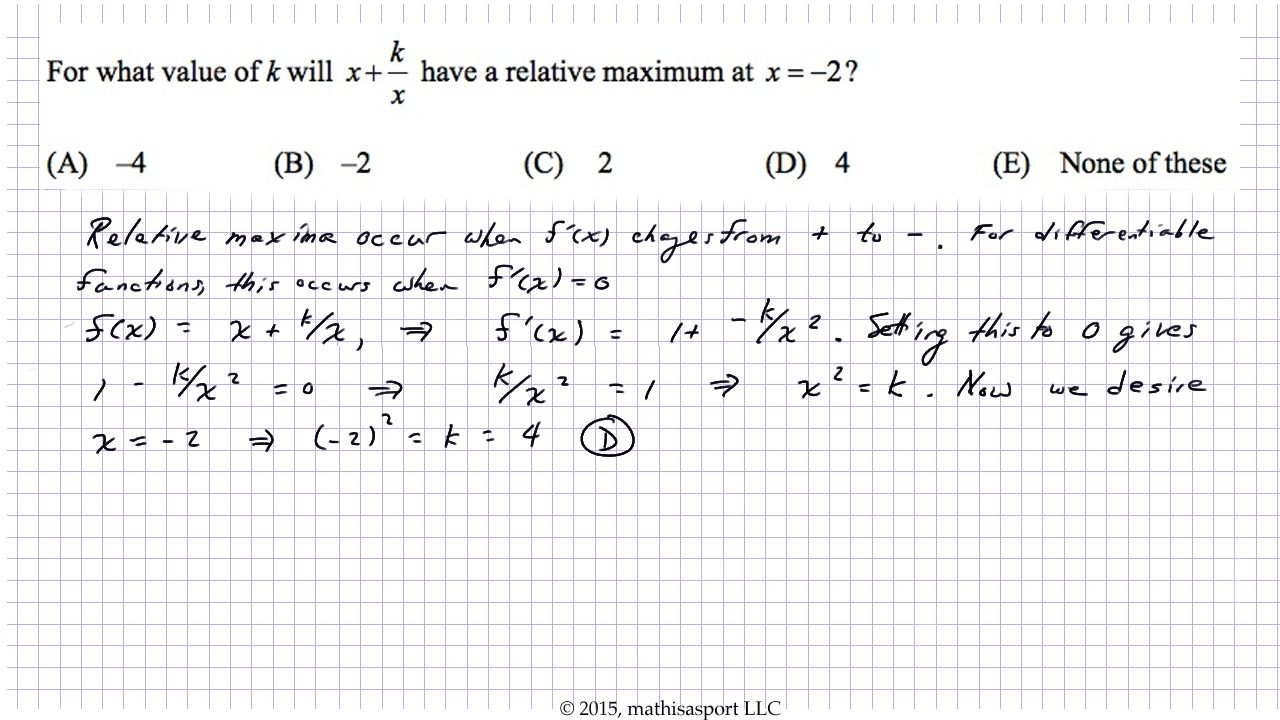 For what value of k will x + k/x have a relative maximum at x = –2?
(A) –4 (B) –2 (C) 2 (D) 4 (E) None of these
Relative maxima occur when f'(x) chages from + to –. For differentiable
functions, this occurs when f'(x) = 0
f(x) = x + k/x, ⇒ f'(x) = 1 + – k/x². Setting this to 0 gives
1 – k/x² = 0 ⇒ k/x² = 1 ⇒ x² = k. Now we desire
x = –2 ⇒ (–2)² = k = 4 D
© 2015, mathisasport LLC